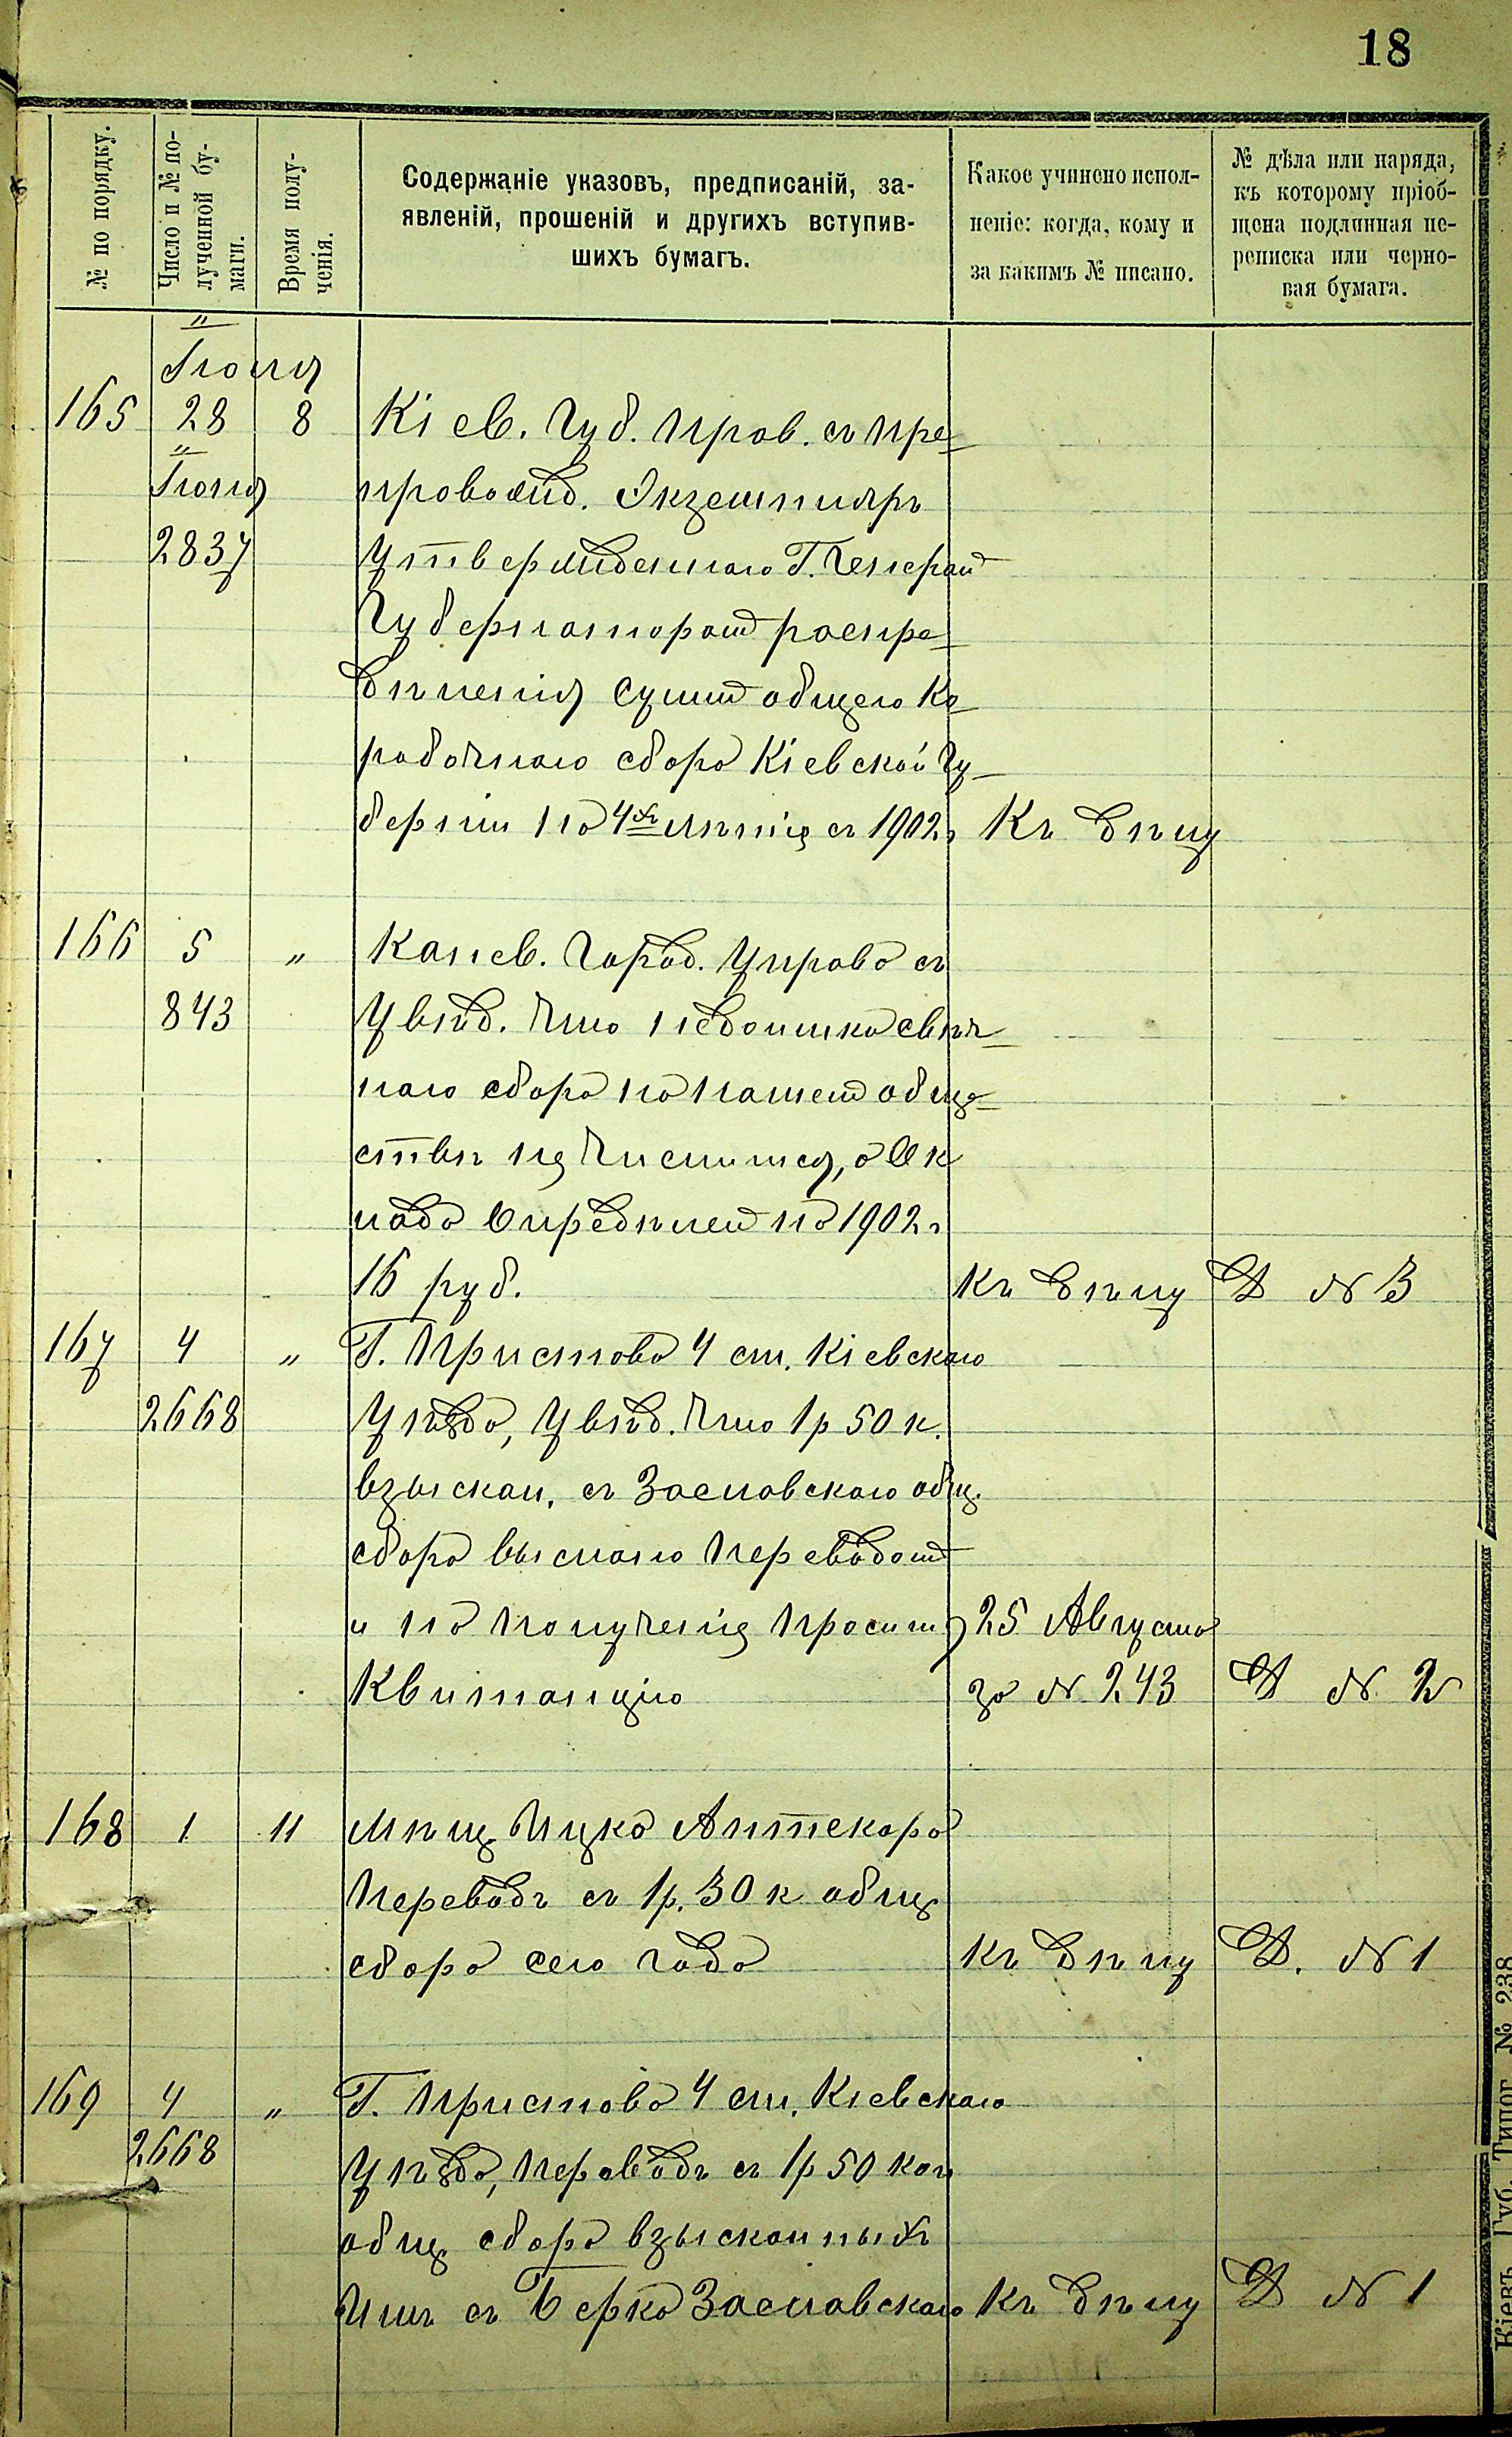 18
№ по порядку.
Число и № по-
лученной бу-
маги.
Время полу-
ченія.
Содержаніе указовъ, предписаній, за-
явленій, прошеній и другихъ вступив-
шихъ бумагъ.
Какое учинено испол-
неніе: когда, кому и
за какимъ № писано.
№ дѣла или наряда,
къ которому пріоб-
щена подлинная пе-
реписка или черно-
вая бумага.
"
Іюня
165 28 8 Кіев. Губ. Прав. съ пре
"
Іюня провожд. Экземпляръ
2837 Утвержденнаго Г. Генерал
Губернаторомъ распре
дѣленія суммъ общаго Ко
робочнаго сбора Кіевской Гу
берніи на 4хъ лѣтіе съ 1902 г Къ дѣлу
166 5 " Канев. Город. Управа съ
843 Увѣд. что недоимка свѣч
наго сбора на нашем обще
ствѣ не числится, а Ок
лада Опредѣлен на 1902 г
16 руб. Къ дѣлу Д № 3
167 4 " Г. Пристава 4 ст. Кіевскаго
2668 Уѣзда, Увѣд. что 1 р 50 к.
взыскан. съ Заславскаго общ.
сбора выслано переводом
и на полученіе просит 25 Августа
Квитанцію за № 243 Д № 2
168 1 11 Мѣщ. Ицка Аптекаря
Переводъ съ 1 р. 30 к общ
сбора сего года Къ дѣлу Д. № 1
169 4 " Г. Пристава 4 ст. Кіевскаго
2668 Уѣзда, Переводъ съ 1 р 50 коп
общ сбора взысканныхъ
Имъ съ Берка Заславскаго Къ дѣлу Д № 1
Кіевъ Губ. Типог. № 238